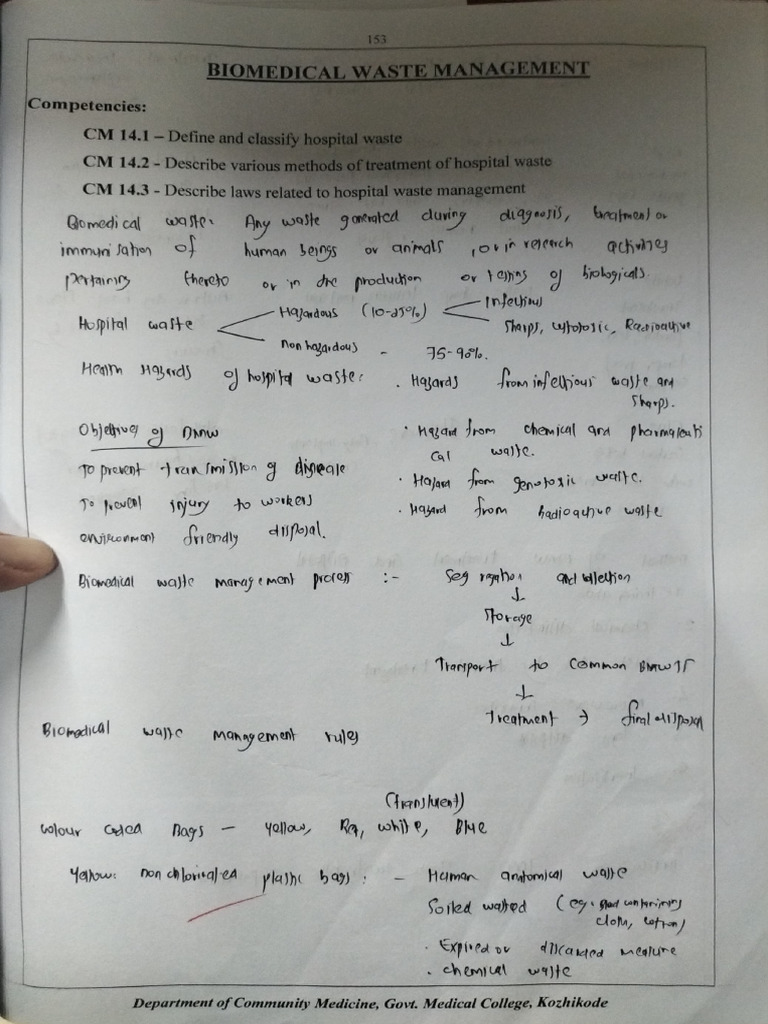 153
BIOMEDICAL WASTE MANAGEMENT
Competencies:
CM 14.1 – Define and classify hospital waste
CM 14.2 - Describe various methods of treatment of hospital waste
CM 14.3 - Describe laws related to hospital waste management
Biomedical waste: Any waste generated during diagnosis, treatment or
immunisation of human beings or animals, or in research activities
pertaining thereto or in the production or testing of biologicals.
Hospital waste Hazardous (10-25%) Infectious
Sharps, cytotoxic, Radioactive
non hazardous - 75-90%.
Health Hazards of hospital waste: . Hazards from infectious waste and
sharps.
Objectives of BMW
. Hazard from chemical and pharmaceuti
cal waste.
To prevent transmission of disease
. Hazard from genotoxic waste.
To prevent injury to workers
. Hazard from radioactive waste
environment friendly disposal.
Biomedical waste management process :- Segregation and collection
↓
Storage
↓
Transport to common BMWTF
↓
Treatment → final disposal
Biomedical waste management rules
(translucent)
Colour coded Bags – Yellow, Red, white, Blue
Yellow: non chlorinated plastic bags: - Human anatomical waste
Soiled wasted (eg: blood containing
cloth, cotton)
. Expired or discarded medicine
. chemical waste
Department of Community Medicine, Govt. Medical College, Kozhikode